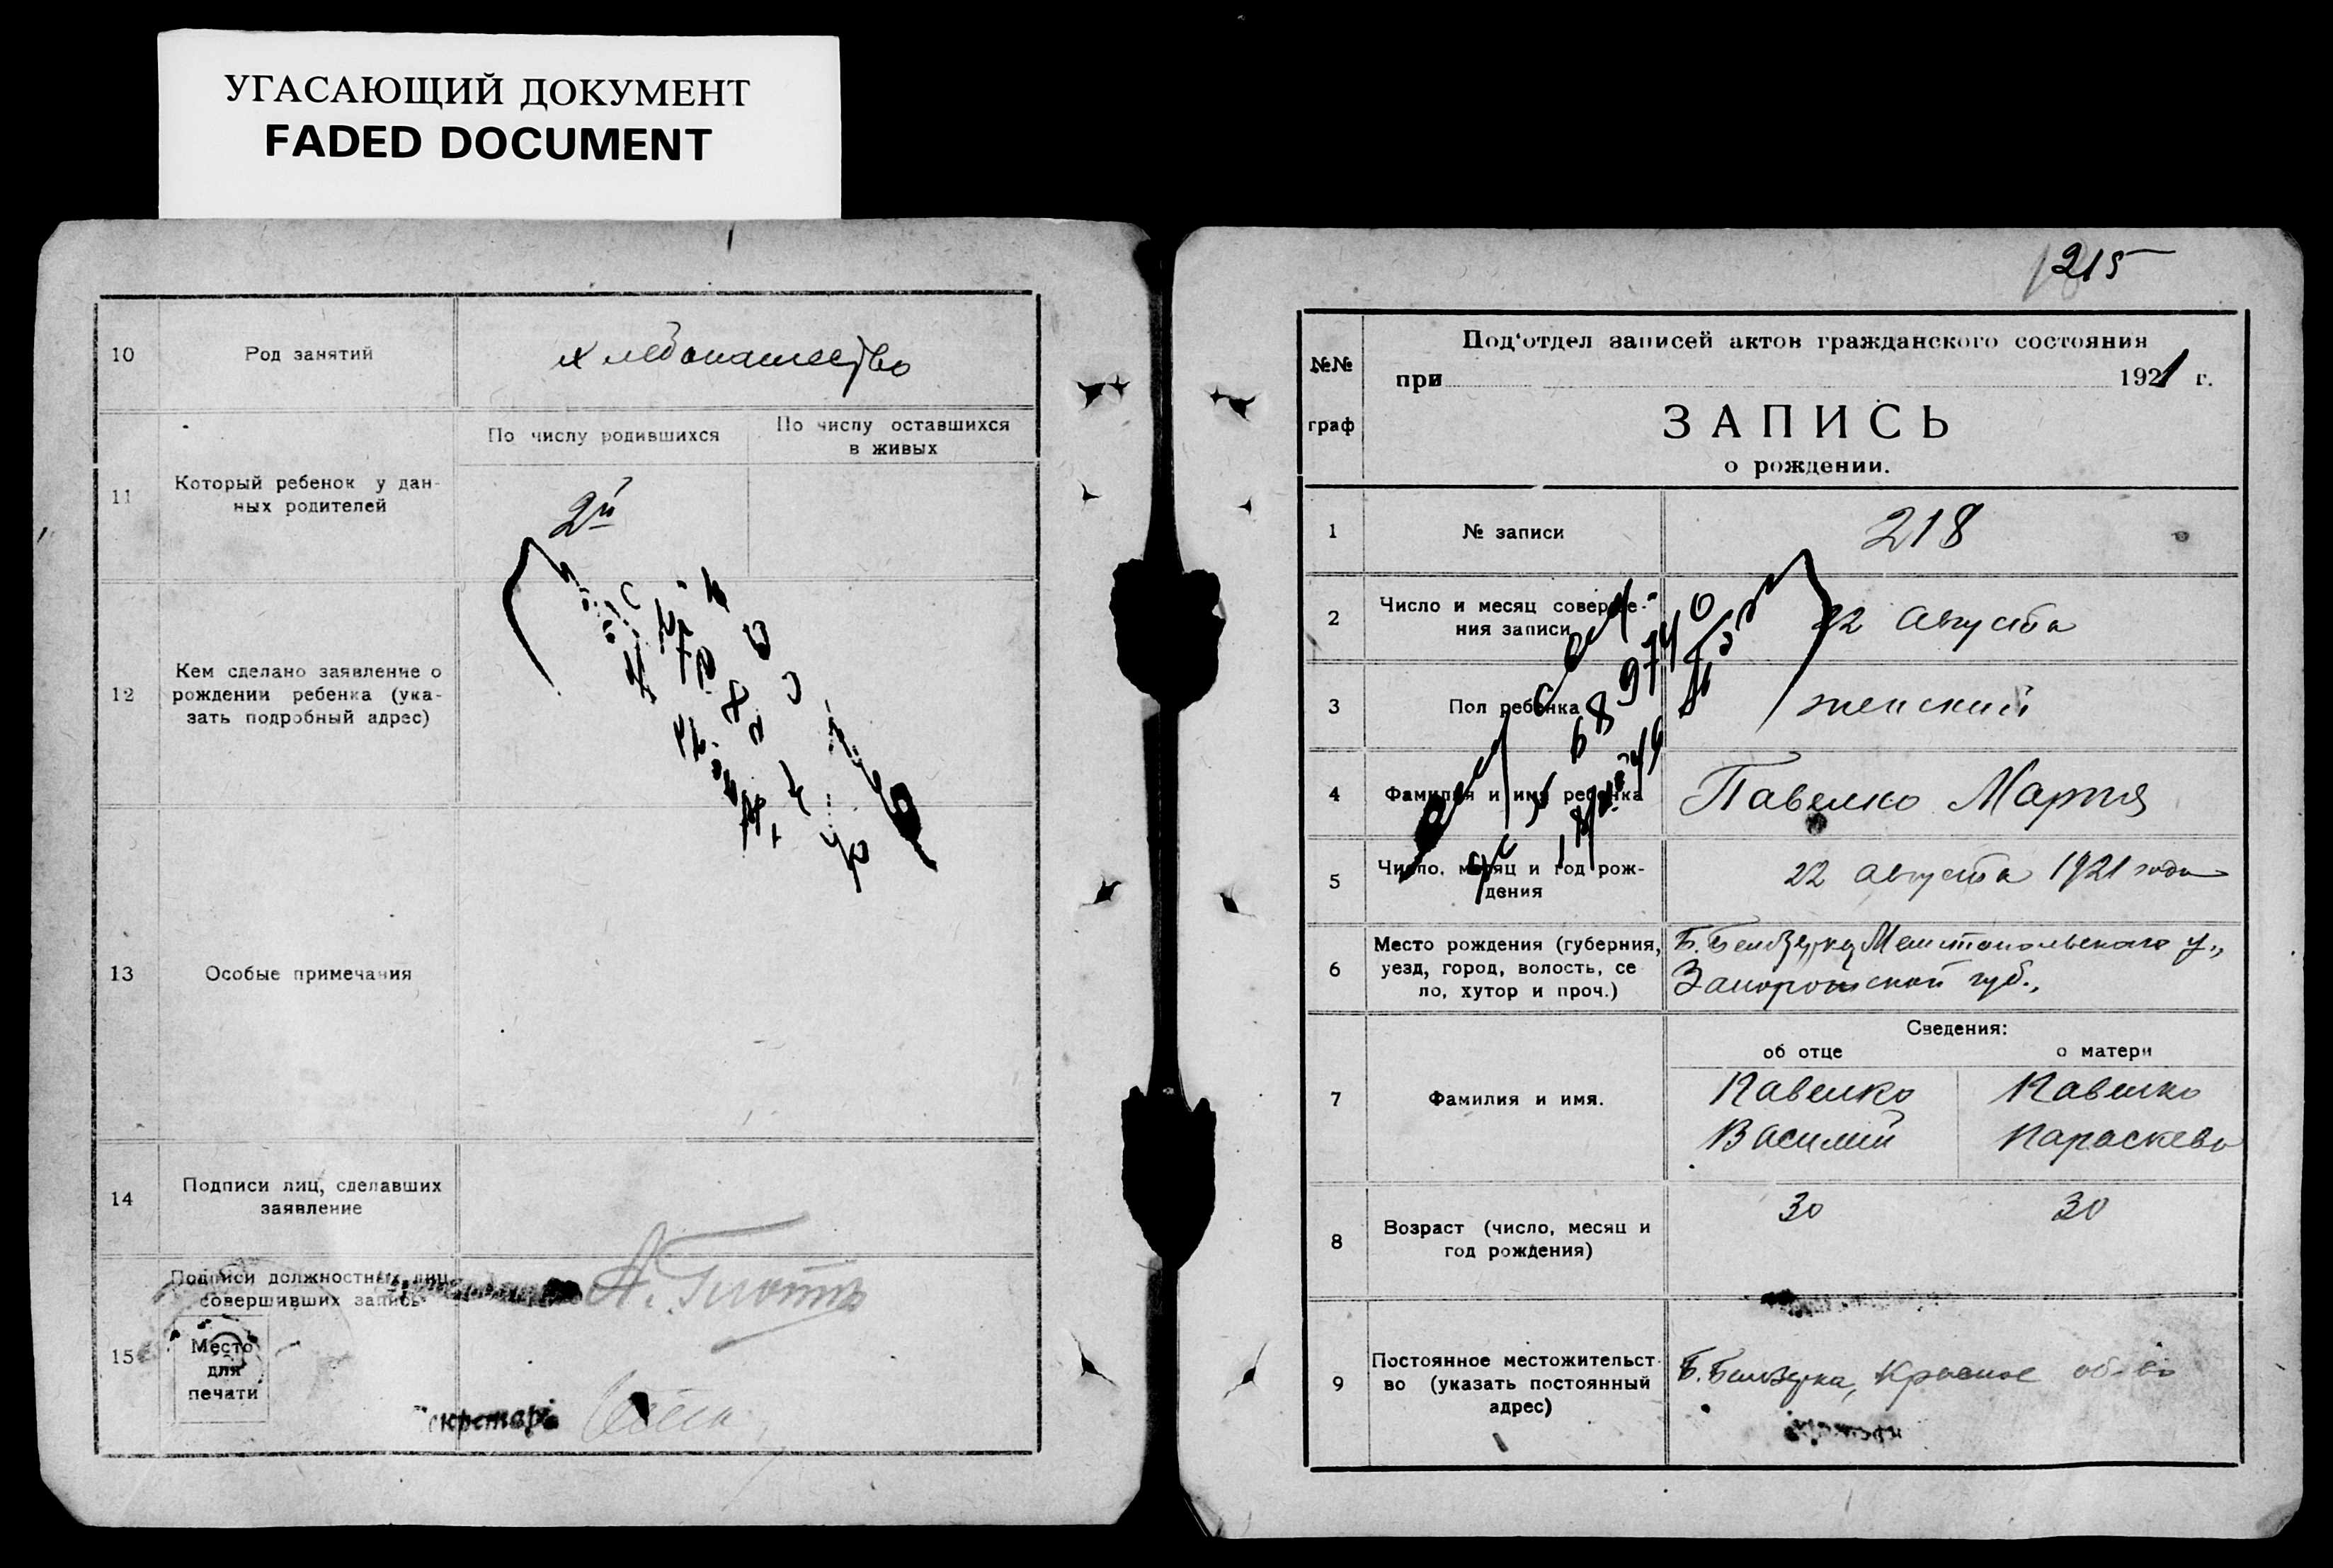 УГАСАЮЩИЙ ДОКУМЕНТ
FADED DOCUMENT
10
Род занятий
хлебопашество
11
Который ребенок у дан-
ных родителей
По числу родившихся
2й
По числу оставшихся
в живых
12
Кем сделано заявление о
рождении ребенка (ука-
зать подробный адрес)
13
Особые примечания
14
Подписи лиц, сделавших
заявление
15
Подписи должностных лиц,
совершивших запись
Место
для
печати
А.
секретарь
215
№№
граф
Под'отдел записей актов гражданского состояния
при 1921 г.
ЗАПИСЬ
о рождении.
1
№ записи
218
2
Число и месяц соверше-
ния записи
22 августа
3
Пол ребенка
женский
4
Фамилия и имя ребенка
Павелко Мария
5
Число, месяц и год рож-
дения
22 августа 1921 года
6
Место рождения (губерния,
уезд, город, волость, се
ло, хутор и проч.)
Б. Белозерка Мелитопольского у.,
Запорожской губ.,
7
Фамилия и имя.
Сведения:
об отце
Павелко
Василий
о матери
Павелко
Параскева
8
Возраст (число, месяц и
год рождения)
30
30
9
Постоянное местожительст
во (указать постоянный
адрес)
Б. Белозерка, Красное об-во